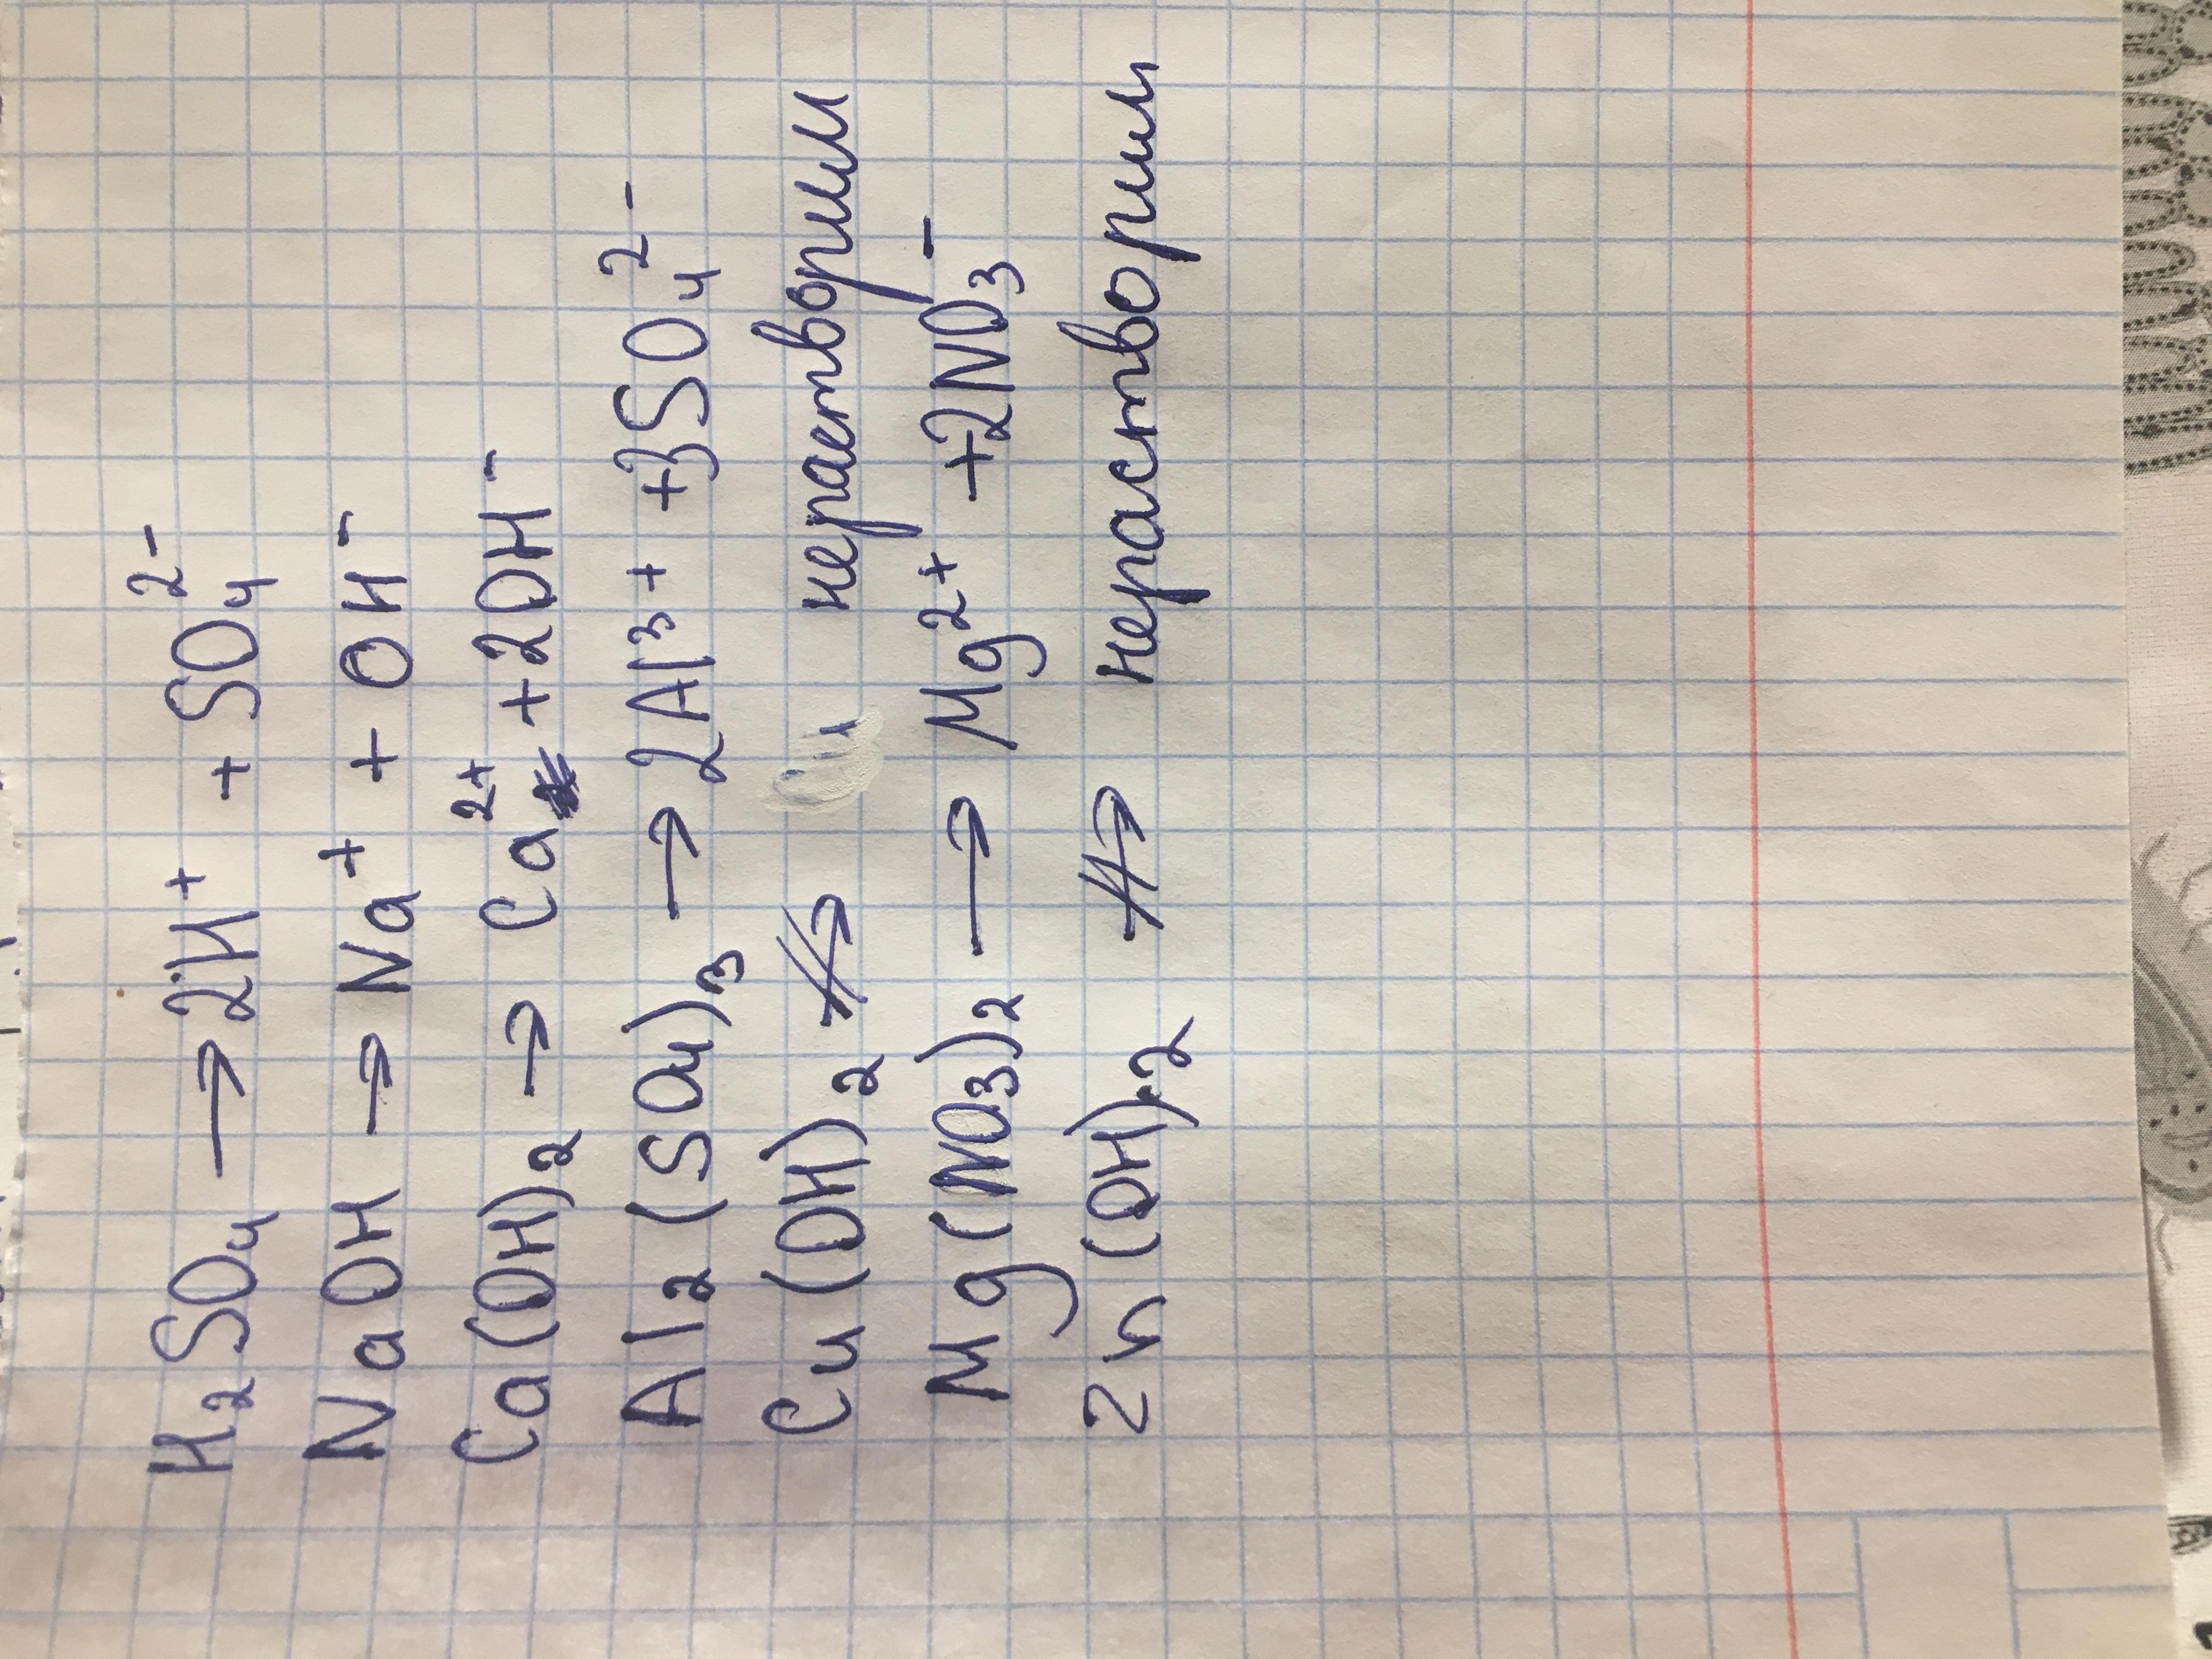 H₂SO₄ → 2H⁺ + SO₄²⁻
NaOH → Na⁺ + OH⁻
Ca(OH)₂ → Ca²⁺ + 2OH⁻
Al₂(SO₄)₃ → 2Al³⁺ + 3SO₄²⁻
Cu(OH)₂ ↛ нерастворим
Mg(NO₃)₂ → Mg²⁺ + 2NO₃⁻
Zn(OH)₂ ↛ нерастворим